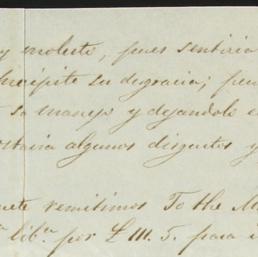 y molesto, pues sentiria
precipite su desgracia; pe
su manejo y dejandolo e
ostaria algunos disgustos y
remitimos To the M
lib.ª por £ 111. 5. para